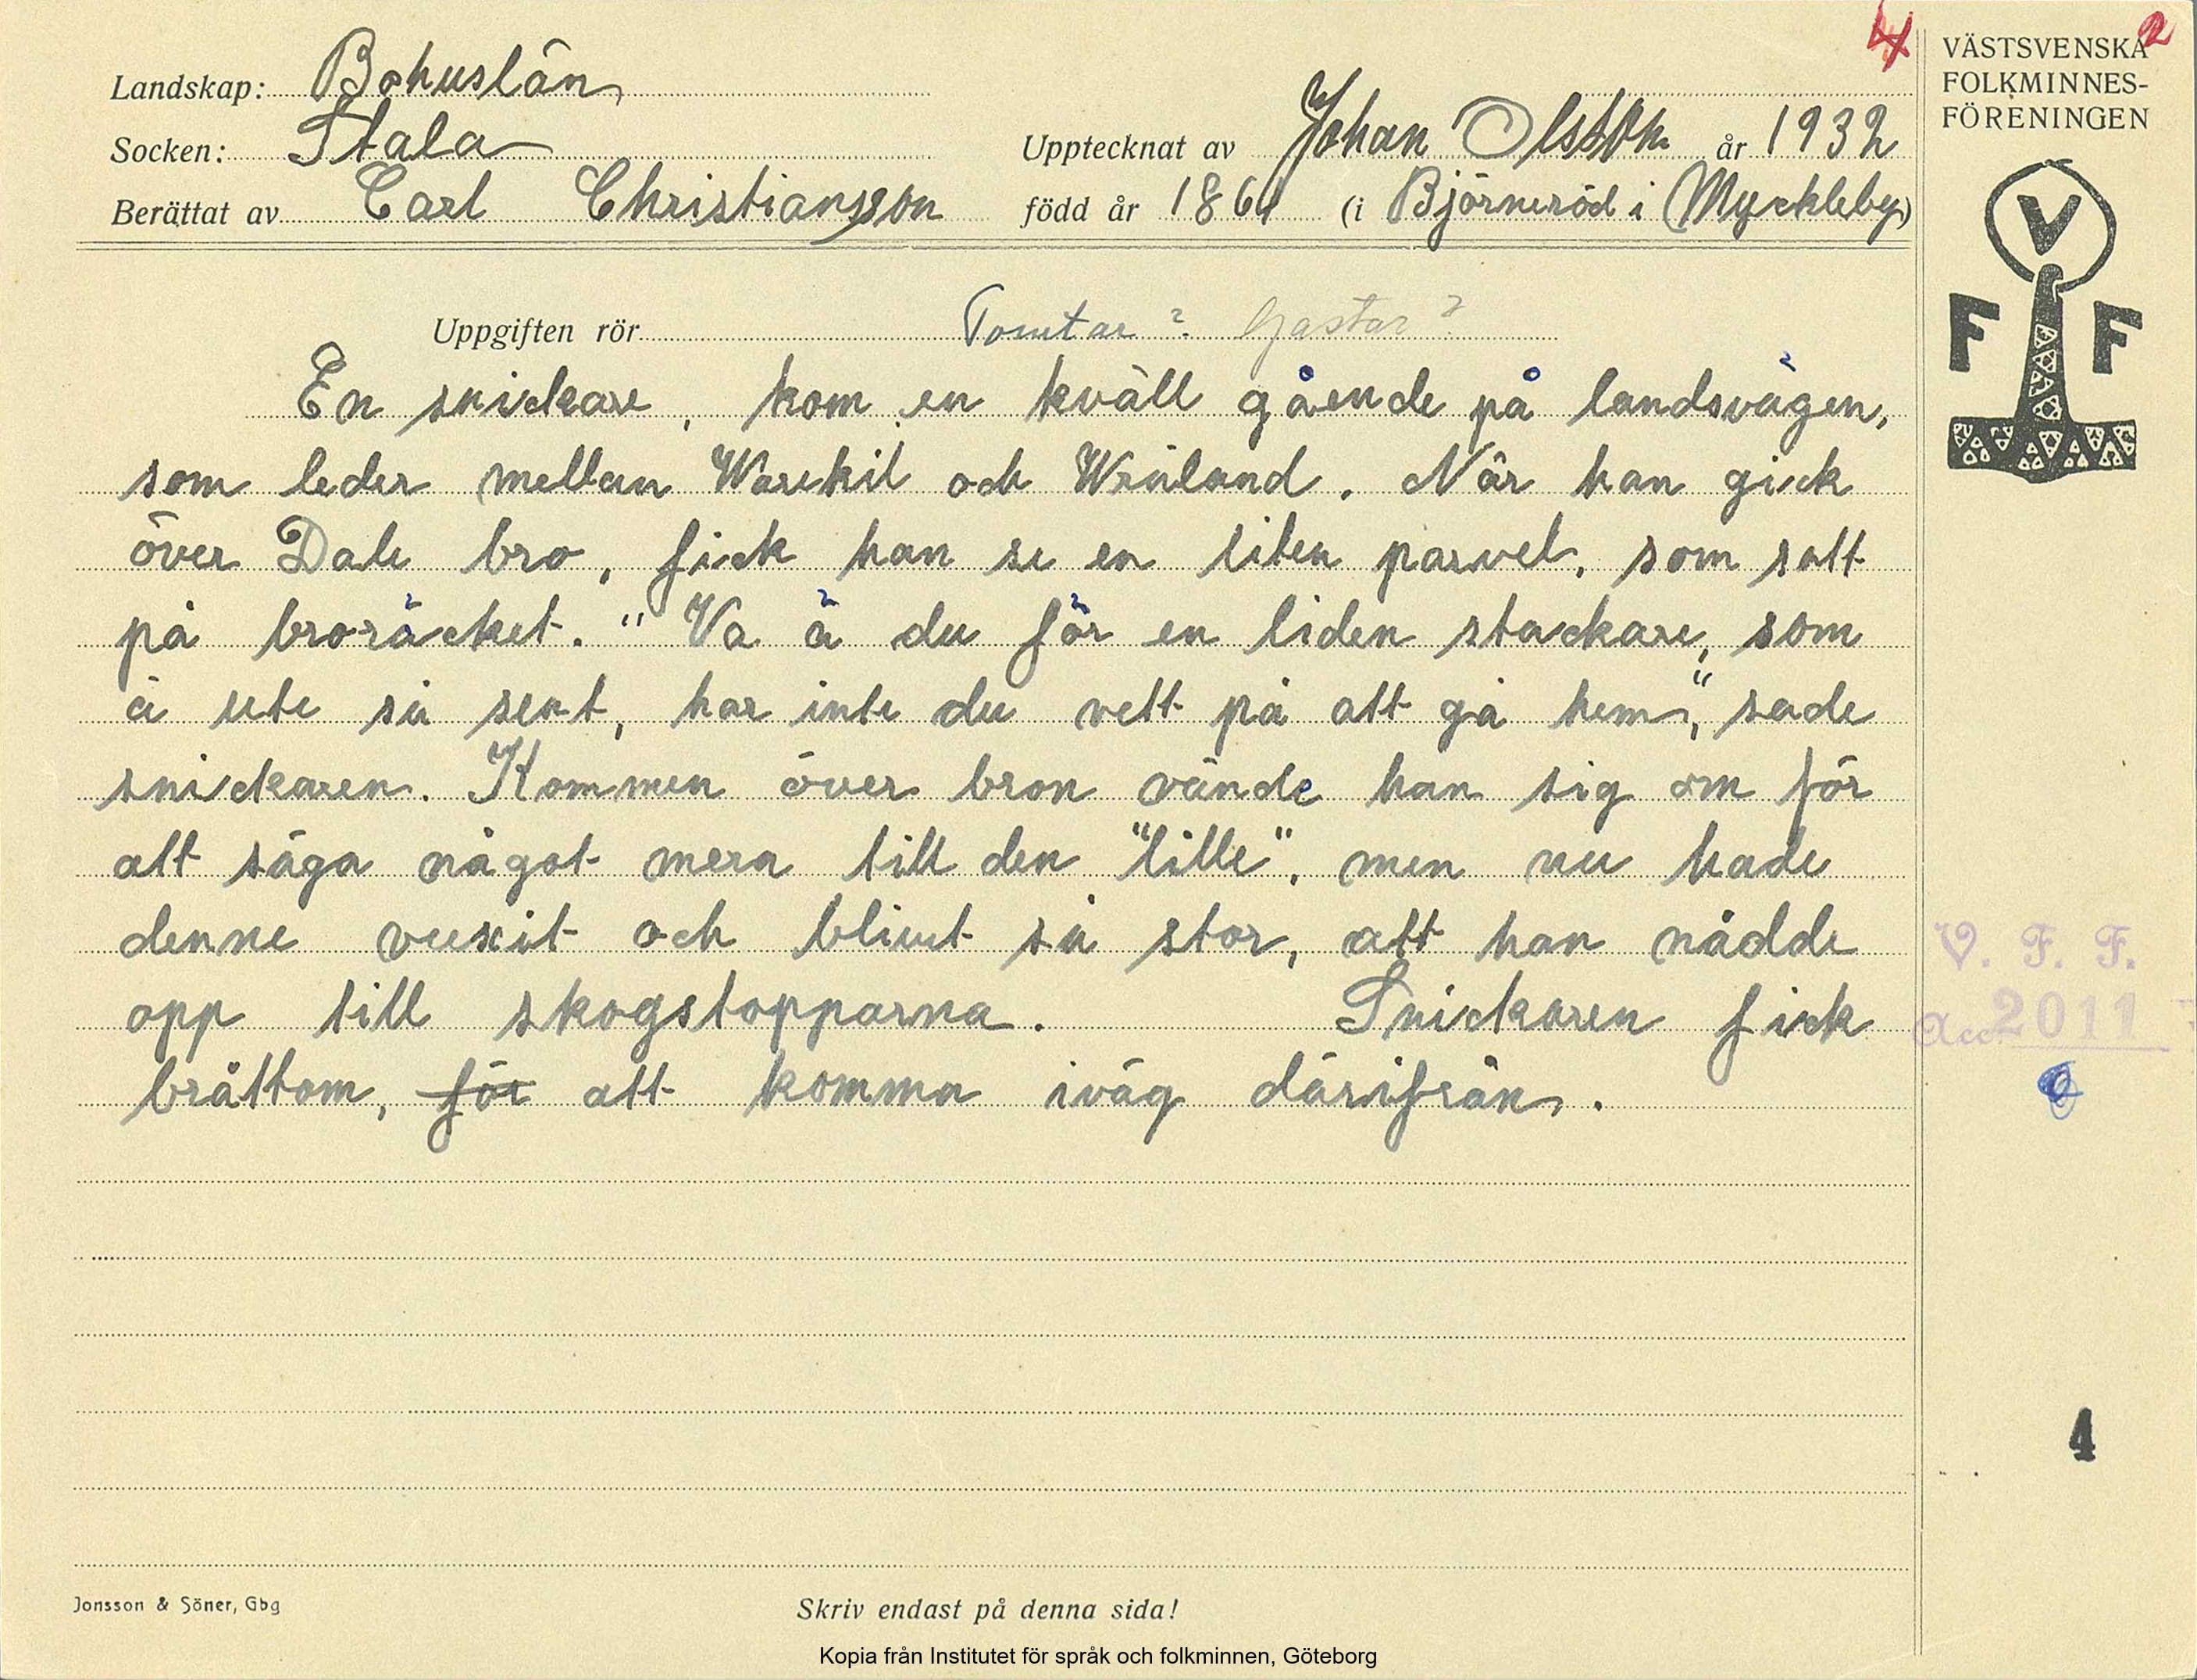 4
VÄSTSVENSKA
2
FOLKMINNES-
FÖRENINGEN
Landskap: Bohuslän
Socken: Stala
Upptecknat av Johan Olsson år 1932
Berättat av Carl Christiansson född år 1864 (i Björneröd i Myckleby)
V
F F
Uppgiften rör Tomtar? Gastar?
En snickare, kom en kväll gående på landsvägen,
som leder mellan Warekil och Wräland. När han gick
över Dale bro, fick han se en liten parvel, som satt
på broräcket. "Va ä du för en liden stackare, som
ä ute så sent, har inte du vett på att gå hem", sade
snickaren. Kommen över bron vände han sig om för
att säga något mera till den "lille", men nu hade
denne vuxit och blivit så stor, att han nådde
opp till skogstopparna. Snickaren fick
bråttom, för att komma iväg därifrån.
V. F. F.
Acc. 2011
4
Jonsson & Söner, Gbg
Skriv endast på denna sida!
Kopia från Institutet för språk och folkminnen, Göteborg